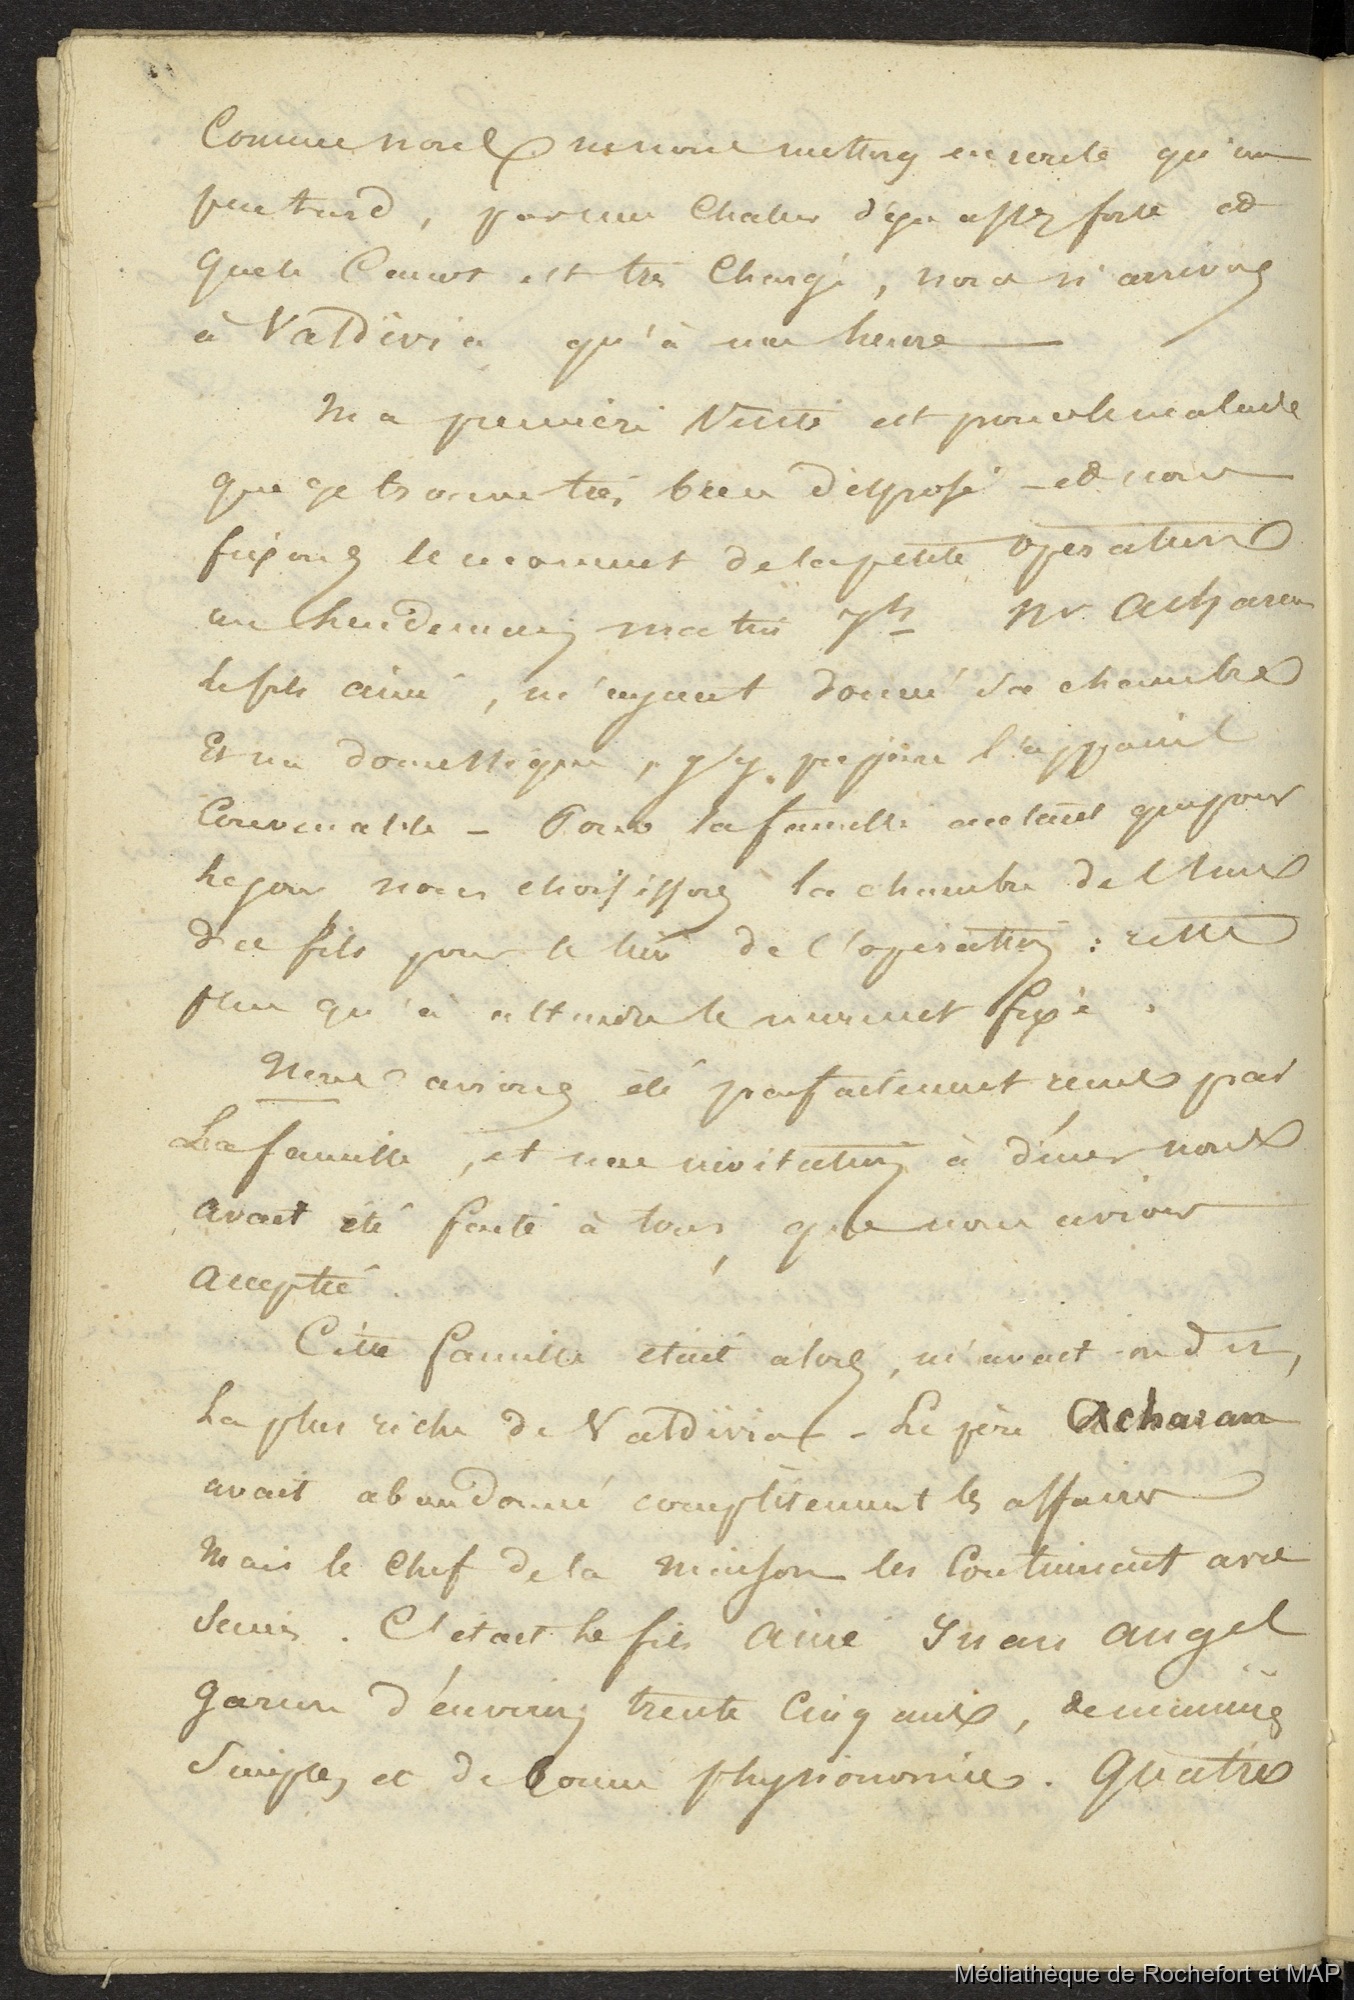 Comme nous ne nous mettons en route qu'un
peu tard, par une chaleur déja assez forte et
que le Canot est très Chargé, nous n'arrivons
à Valdivia qu'à une heure
Ma première visite est pour le malade
que je trouve très bien disposé et nous
fixons le moment de la petite opération
au lendemain matin 7h Mr Acharan
le fils ainé, m'ayant donné sa chambre
Et un domestique, j'y prépare l'appareil
Convenable - Pour la famille autant que pour
le jour nous choisissons la chambre de
du fils pour le lieu de l'opération : reste
plus qu'à attendre le moment fixé.
Nous avions été parfaitement reçus par
La famille, et une invitation à diner nous
avait été faite à tous, que nous avions
acceptée.
Cette famille était alors, m'avait-on dit,
La plus riche de Valdivia - Le père Acharan
avait abandonné complètement les affaires
Mais le chef de la maison les Continuait avec
Succès. C'était le fils ainé Juan Angel
garçon d'environ trente Cinq ans, de manières
Simples et de bonne physionomie. Quatre
Médiathèque de Rochefort et MAP